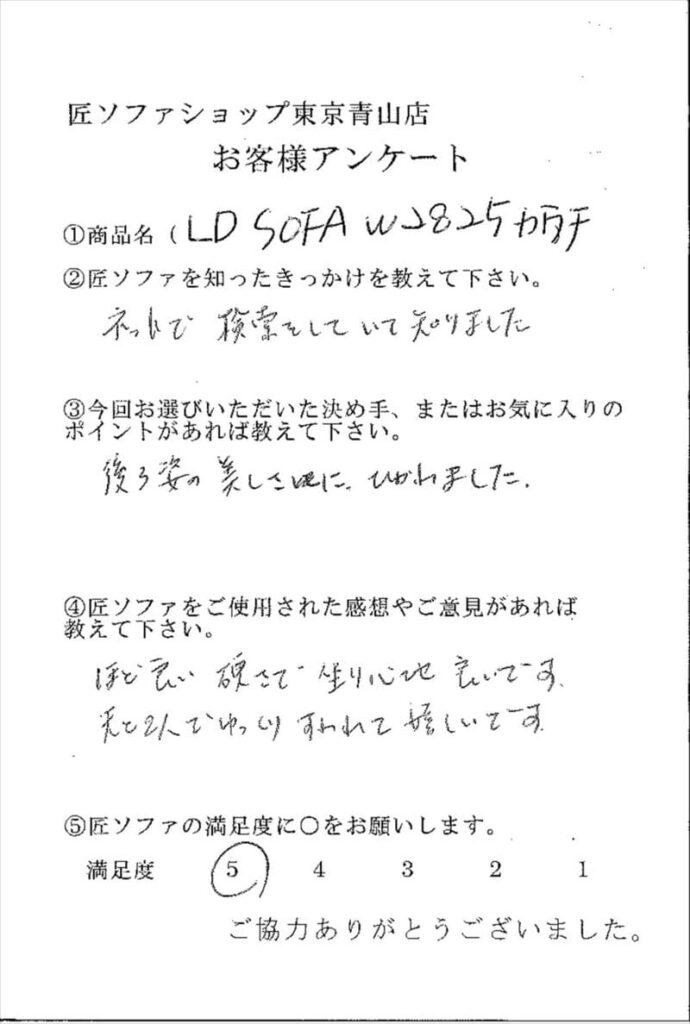 匠ソファショップ東京青山店
お客様アンケート
①商品名（LD SOFA W2825カタチ
②匠ソファを知ったきっかけを教えて下さい。
ネットで検索をしていて知りました
③今回お選びいただいた決め手、またはお気に入りの
ポイントがあれば教えて下さい。
後ろ姿の美しさに、ひかれました.
④匠ソファをご使用された感想やご意見があれば
教えて下さい。
ほど良い硬さで坐り心地良いです.
夫と2人でゆっくりすわれて嬉しいです
⑤匠ソファの満足度に〇をお願いします。
満足度 5 4 3 2 1
ご協力ありがとうございました。